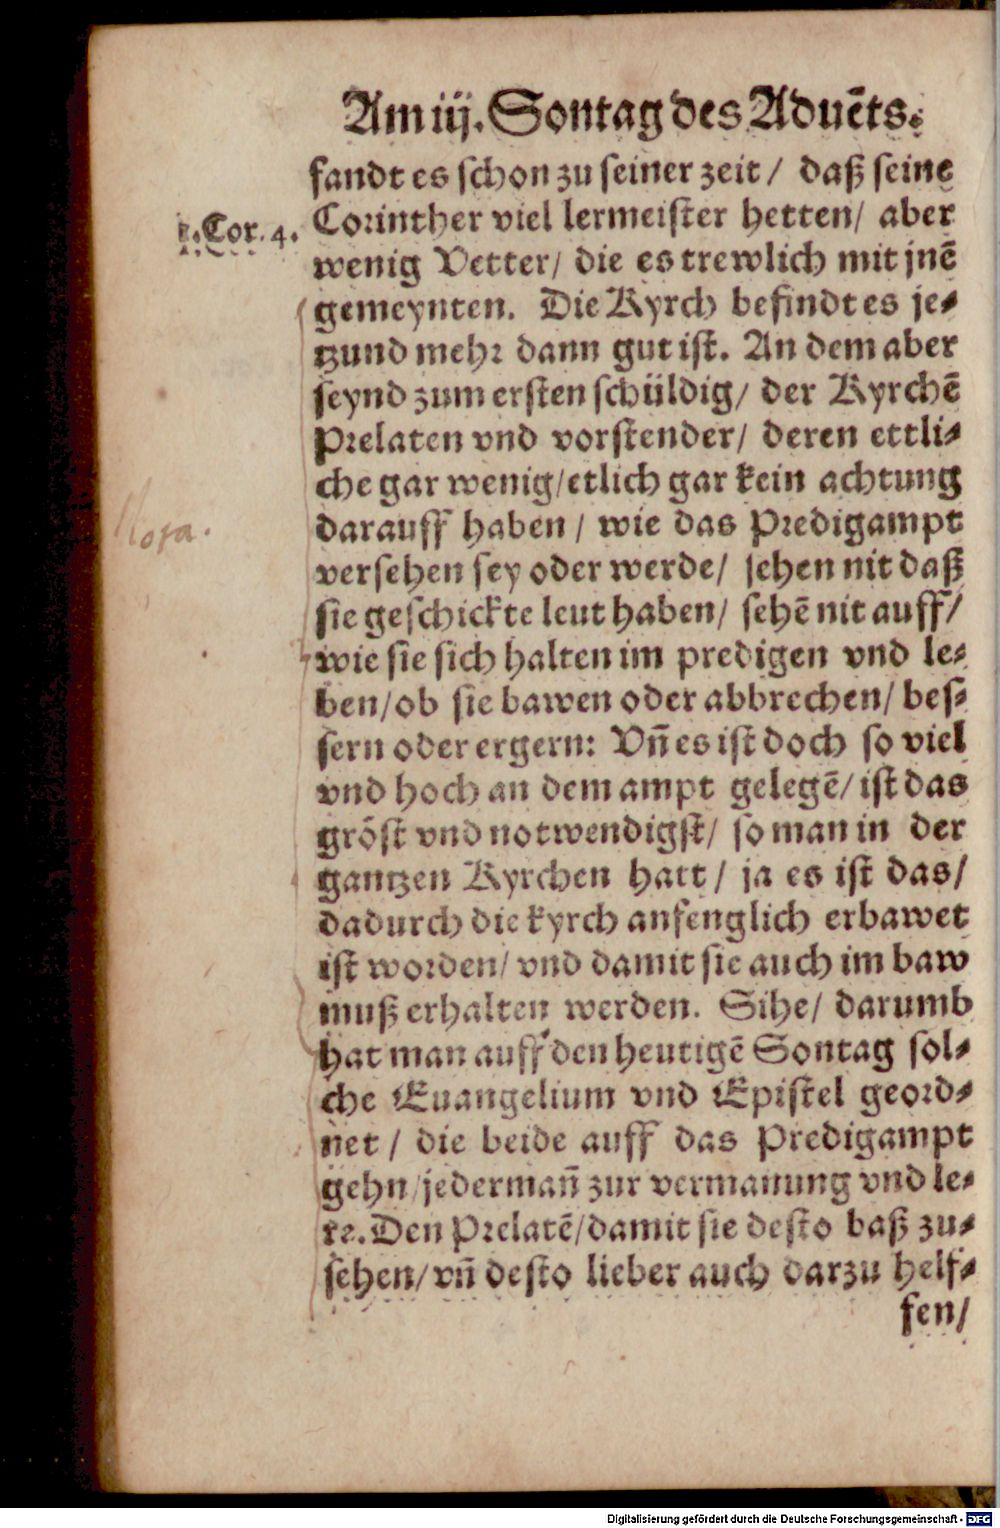 Am iij. Sontag des Aduēts.
fandt es schon zu seiner zeit / daß seine
1. Cor. 4.
Corinther viel lermeister hetten / aber
wenig Vetter / die es trewlich mit jnē
gemeynten. Die Kyrch befindt es je⸗
tzund mehr dann gut ist. An dem aber
seynd zum ersten schüldig / der Kyrchē
Prelaten vnd vorstender / deren ettli⸗
che gar wenig / etlich gar kein achtung
darauff haben / wie das Predigampt
versehen sey oder werde / sehen nit daß
sie geschickte leut haben / sehē nit auff /
wie sie sich halten im predigen vnd le⸗
ben / ob sie bawen oder abbrechen / bes⸗
sern oder ergern: Vñ es ist doch so viel
vnd hoch an dem ampt gelegē / ist das
gröst vnd notwendigst / so man in der
gantzen Kyrchen hatt / ja es ist das /
dadurch die kyrch anfenglich erbawet
ist worden / vnd damit sie auch im baw
muß erhalten werden. Sihe / darumb
hat man auff den heutigē Sontag sol⸗
che Euangelium vnd Epistel geord⸗
net / die beide auff das Predigampt
gehn / jedermañ zur vermanung vnd le⸗
re. Den Prelatē / damit sie desto baß zu⸗
sehen / vñ desto lieber auch darzu helf⸗
fen /
Digitalisierung gefördert durch die Deutsche Forschungsgemeinschaft - DFG